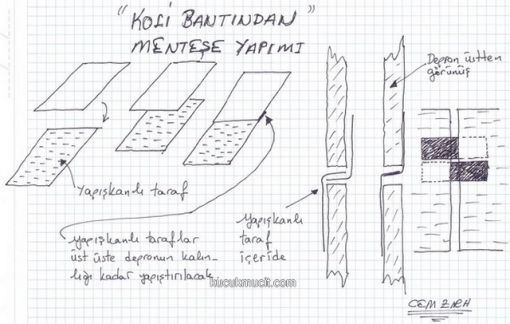 "KOLİ BANTINDAN"
MENTEŞE YAPIMI
Depron üstten
görünüş
Yapışkanlı taraf
Yapışkanlı taraflar
üst üste depronun kalın-
lığı kadar yapıştırılacak.
Yapışkanlı
taraf
içeride
kucukmucit.com
CEM ZAFR